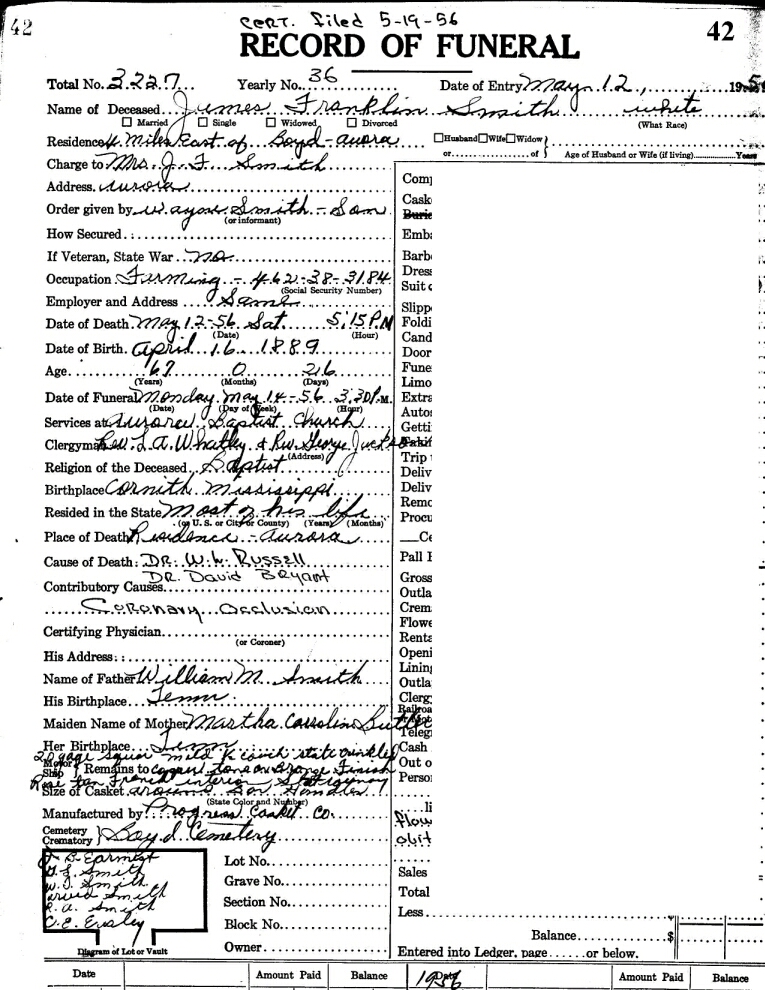 42
CERT. Filed 5-19-56
RECORD OF FUNERAL
42
Total No. 3227 Yearly No. 36 Date of Entry May 12, 195
Name of Deceased James Franklin Smith white
☐ Married ☐ Single ☐ Widowed ☐ Divorced (What Race)
Residence 4 miles East of Boyd-Aurora ☐Husband☐Wife☐Widow
or of Age of Husband or Wife (if living) Years
Charge to Mrs. J. F. Smith
Address Aurora
Order given by Wayne Smith - Son
(or informant)
How Secured
If Veteran, State War no
Occupation Farming - 462-38-3184
(Social Security Number)
Employer and Address Same
Date of Death May 12-56 Sat. 5:15 P.M
(Date) (Hour)
Date of Birth April 16 1889
Age 67 0 26
(Years) (Months) (Days)
Date of Funeral Monday May 14-56 3:30 P.M.
(Date) (Day of Week) (Hour)
Services at Aurora Baptist Church
(Address)
Clergyman Rev. L. A. Whatley & Rev. George
Religion of the Deceased Baptist
Birthplace Cornith Mississippi
Resided in the State Most of his life
(or U. S. or City or County) (Years) (Months)
Place of Death Residence - Aurora
Cause of Death: DR. W. L. RUSSELL
DR. David BRyant
Contributory Causes
Coronary Occlusion
Certifying Physician
(or Coroner)
His Address:
Name of Father William M. Smith
His Birthplace Tenn
Maiden Name of Mother Martha Carroline
Her Birthplace Tenn
20 gage couch state
Motor Ship } Remains to Bronze Finish
Rose tan French interior
Size of Casket
(State Color and Number)
Manufactured by Progress Casket Co.
Cemetery Crematory } Boyd Cemetery
Smith
W. J. Smith
Smith
R. A. Smith
C. E.
Diagram of Lot or Vault
Lot No.
Grave No.
Section No.
Block No.
Owner
Comp
Cask
Buri
Emba
Barb
Dress
Suit
Slipp
Foldi
Cand
Door
Fune
Limo
Extra
Autos
Getti
Trip
Deliv
Deliv
Remo
Procu
Ce
Pall
Gross
Outla
Crem
Flowe
Renta
Openi
Lining
Outla
Clerg
Railroa
Telegr
Cash
Out o
Perso
li
flow
obit
Sales
Total
Less
Balance $
Entered into Ledger, page ......or below.
Date Amount Paid Balance 1956 Date Amount Paid Balance